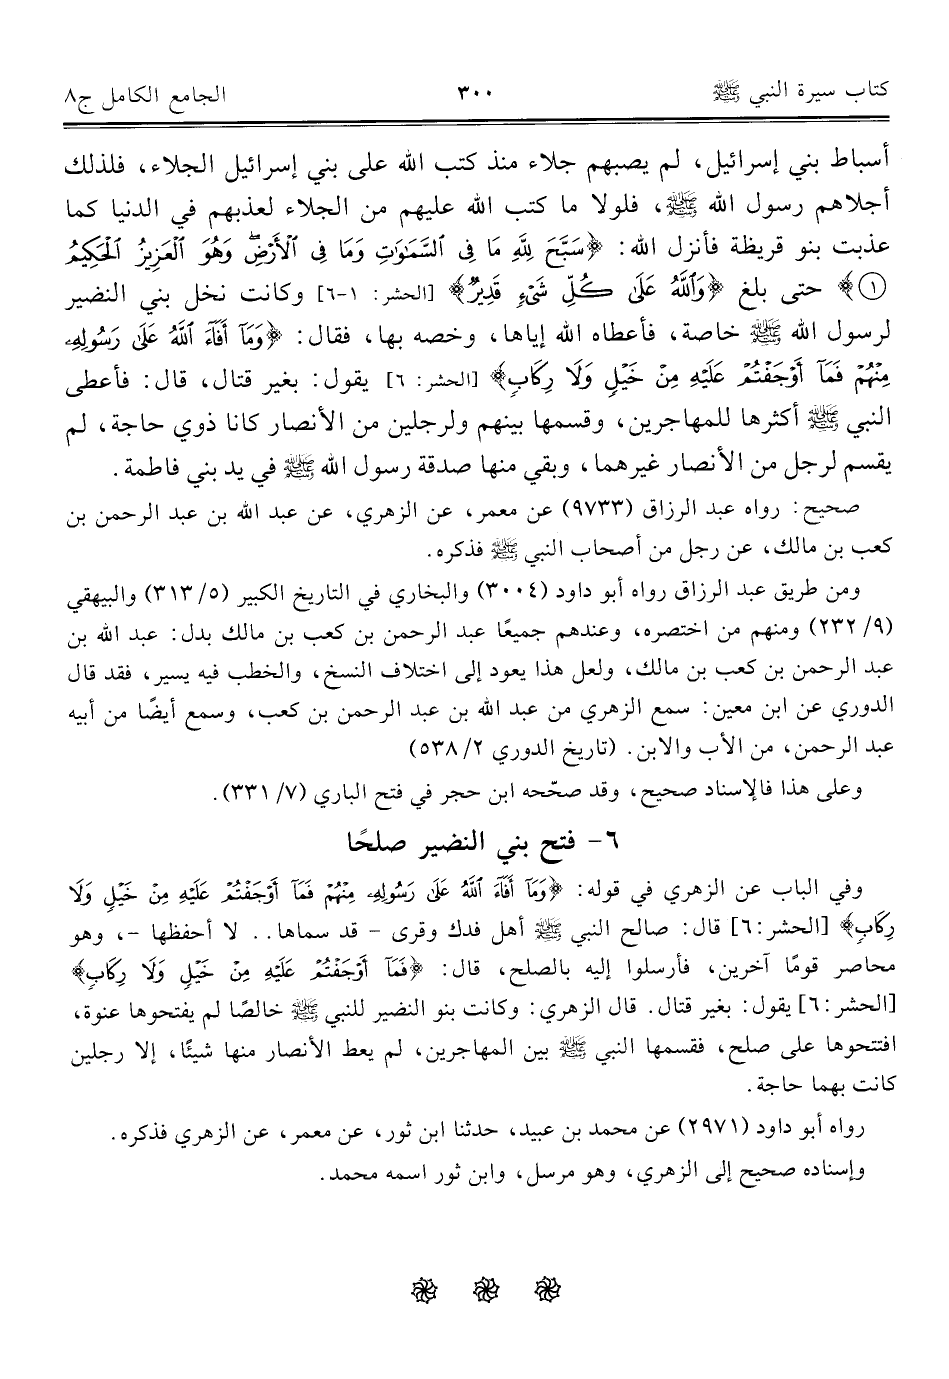 كتاب سيرة النبي ﷺ ٣٠٠ الجامع الكامل ج٨
أسباط بني إسرائيل، لم يصبهم جلاء منذ كتب الله على بني إسرائيل الجلاء، فلذلك
أجلاهم رسول الله ﷺ، فلولا ما كتب الله عليهم من الجلاء لعذبهم في الدنيا كما
عذبت بنو قريظة فأنزل الله: ﴿سَبَّحَ لِلَّهِ مَا فِي السَّمَٰوَٰتِ وَمَا فِي الْأَرْضِ ۖ وَهُوَ الْعَزِيزُ الْحَكِيمُ
١﴾ حتى بلغ ﴿وَاللَّهُ عَلَىٰ كُلِّ شَيْءٍ قَدِيرٌ﴾ [الحشر: ١-٦] وكانت نخل بني النضير
لرسول الله ﷺ خاصة، فأعطاه الله إياها، وخصه بها، فقال: ﴿وَمَا أَفَاءَ اللَّهُ عَلَىٰ رَسُولِهِ
مِنْهُمْ فَمَا أَوْجَفْتُمْ عَلَيْهِ مِنْ خَيْلٍ وَلَا رِكَابٍ﴾ [الحشر: ٦] يقول: بغير قتال، قال: فأعطى
النبي ﷺ أكثرها للمهاجرين، وقسمها بينهم ولرجلين من الأنصار كانا ذوي حاجة، لم
يقسم لرجل من الأنصار غيرهما، وبقي منها صدقة رسول الله ﷺ في يد بني فاطمة.
صحيح: رواه عبد الرزاق (٩٧٣٣) عن معمر، عن الزهري، عن عبد الله بن عبد الرحمن بن
كعب بن مالك، عن رجل من أصحاب النبي ﷺ فذكره.
ومن طريق عبد الرزاق رواه أبو داود (٣٠٠٤) والبخاري في التاريخ الكبير (٥/ ٣١٣) والبيهقي
(٩/ ٢٣٢) ومنهم من اختصره، وعندهم جميعًا عبد الرحمن بن كعب بن مالك بدل: عبد الله بن
عبد الرحمن بن كعب بن مالك، ولعل هذا يعود إلى اختلاف النسخ، والخطب فيه يسير، فقد قال
الدوري عن ابن معين: سمع الزهري من عبد الله بن عبد الرحمن بن كعب، وسمع أيضًا من أبيه
عبد الرحمن، من الأب والابن. (تاريخ الدوري ٢/ ٥٣٨)
وعلى هذا فالإسناد صحيح، وقد صحّحه ابن حجر في فتح الباري (٧/ ٣٣١).
٦- فتح بني النضير صلحًا
وفي الباب عن الزهري في قوله: ﴿وَمَا أَفَاءَ اللَّهُ عَلَىٰ رَسُولِهِ مِنْهُمْ فَمَا أَوْجَفْتُمْ عَلَيْهِ مِنْ خَيْلٍ وَلَا
رِكَابٍ﴾ [الحشر:٦] قال: صالح النبي ﷺ أهل فدك وقرى - قد سماها.. لا أحفظها -، وهو
محاصر قومًا آخرين، فأرسلوا إليه بالصلح، قال: ﴿فَمَا أَوْجَفْتُمْ عَلَيْهِ مِنْ خَيْلٍ وَلَا رِكَابٍ﴾
[الحشر:٦] يقول: بغير قتال. قال الزهري: وكانت بنو النضير للنبي ﷺ خالصًا لم يفتحوها عنوة،
افتتحوها على صلح، فقسمها النبي ﷺ بين المهاجرين، لم يعط الأنصار منها شيئًا، إلا رجلين
كانت بهما حاجة.
رواه أبو داود (٢٩٧١) عن محمد بن عبيد، حدثنا ابن ثور، عن معمر، عن الزهري فذكره.
وإسناده صحيح إلى الزهري، وهو مرسل، وابن ثور اسمه محمد.